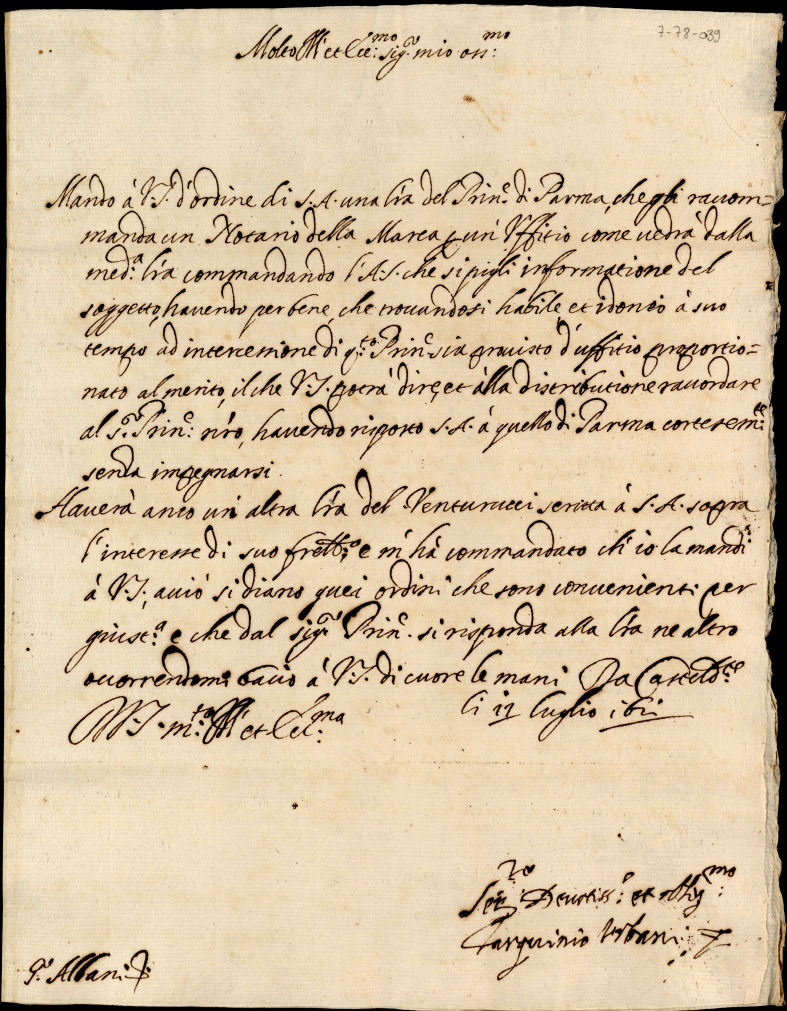 7-78-039
Molto Ill.re et Ecc.mo sig.r mio oss.mo
Mando à V.S. d'ordine di S.A. una l'ra del Prin.e di Parma, che gli racom=
manda un Notario della Marca p un' Vffitio come uedrà dalla
med.a l'ra commandando l'A.S. che si pigli informatione del
soggetto, hauendo per bene, che trouandosi habile et idoneo à suo
tempo ad intercessione di q.to Prin.e sia prouisto d'uffitio proportio=
nato al merito, il che V.S. potrà dire, et alla distributione racordare
al s.r Prin.e n'ro, hauendo risposto S.A. à quello di Parma cortesem.te
senza impegnarsi.
Hauerà anco un' altra l'ra del Venturucci scritta à S.A. sopra
l'interesse di suo frello, e m'hà commandato ch'io la mandi
à V.S. acciò si diano quei ordini che sono conuenienti per
giust.a e che dal sig.r Prin.e si risponda alla l'ra ne altro
occorrendomi bacio à V.S. di cuore le mani Da Casteld.te
li 12 luglio 1621
Di V.S. m.to Ill.re et Ecc.ma
Ser.re Deuotiss.o et oblig.mo
Tarquinio Vrbani
S.r Albani